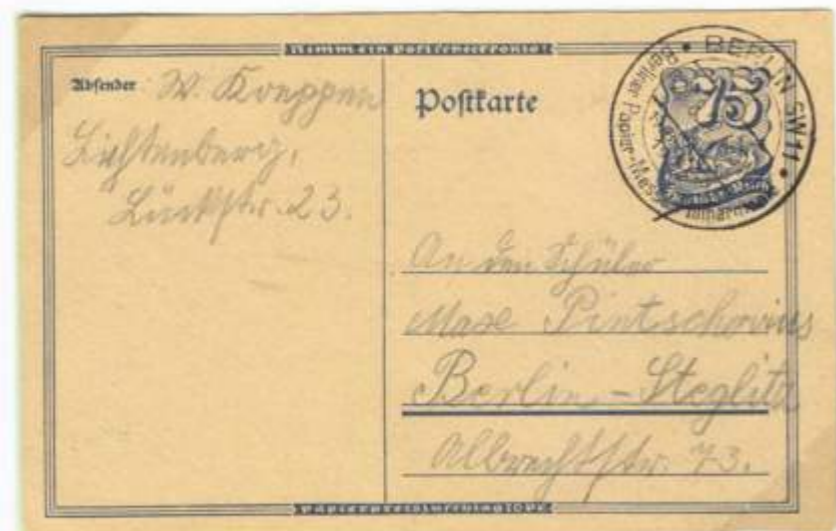 Nimm ein Postscheckkonto!
Absender W. Koeppen
Lichtenberg,
Lückstr. 23.
Postkarte
BERLIN SW11
Berliner Papier-Mess
75
An den Schüler
Max Pintschovius
Berlin-Steglitz
Albrechtstr. 73.